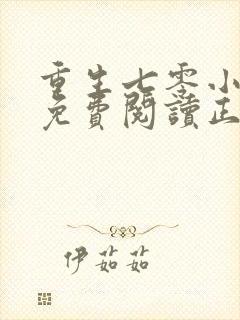 重生七零小
免費閱讀正
伊茹茹